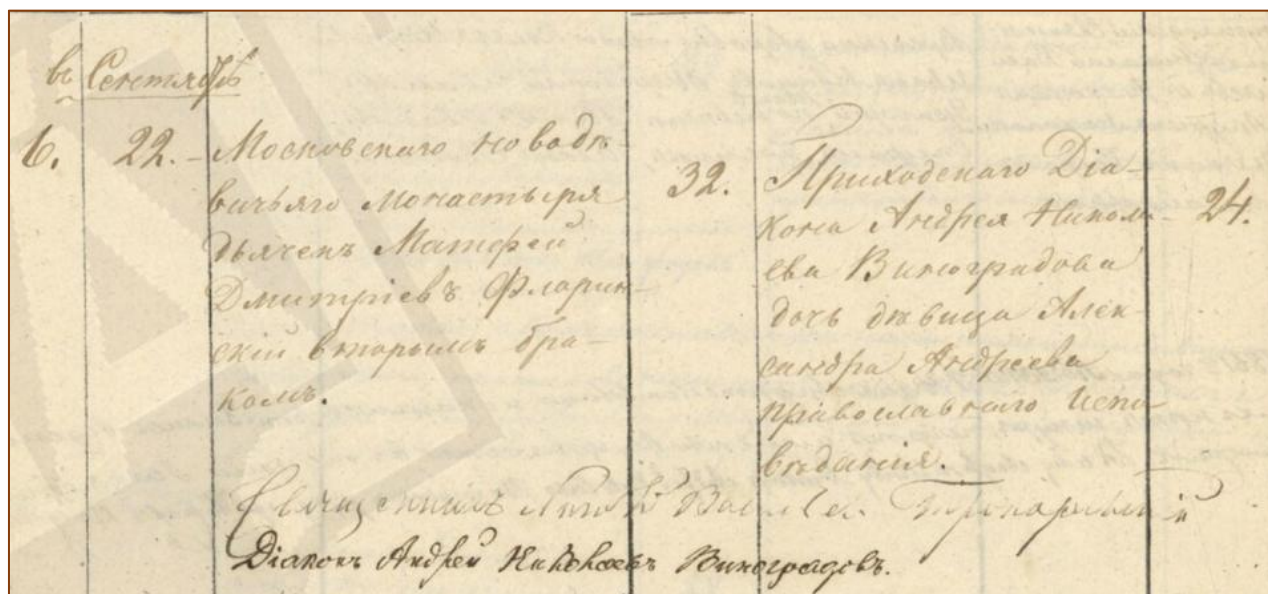 въ Сентябрѣ
6. 22. Московскаго Новодѣ-
вичьяго монастыря
дьячекъ Матфей
Дмитріевъ Флорин-
скій вторымъ бра-
комъ.
32.
Приходскаго Діа-
кона Андрея Никола-
ева Виноградова
дочь дѣвица Алек-
сандра Андреева
православнаго испо-
вѣданія.
24.
Священникъ
Діаконъ Андрей Николаевъ Виноградовъ.